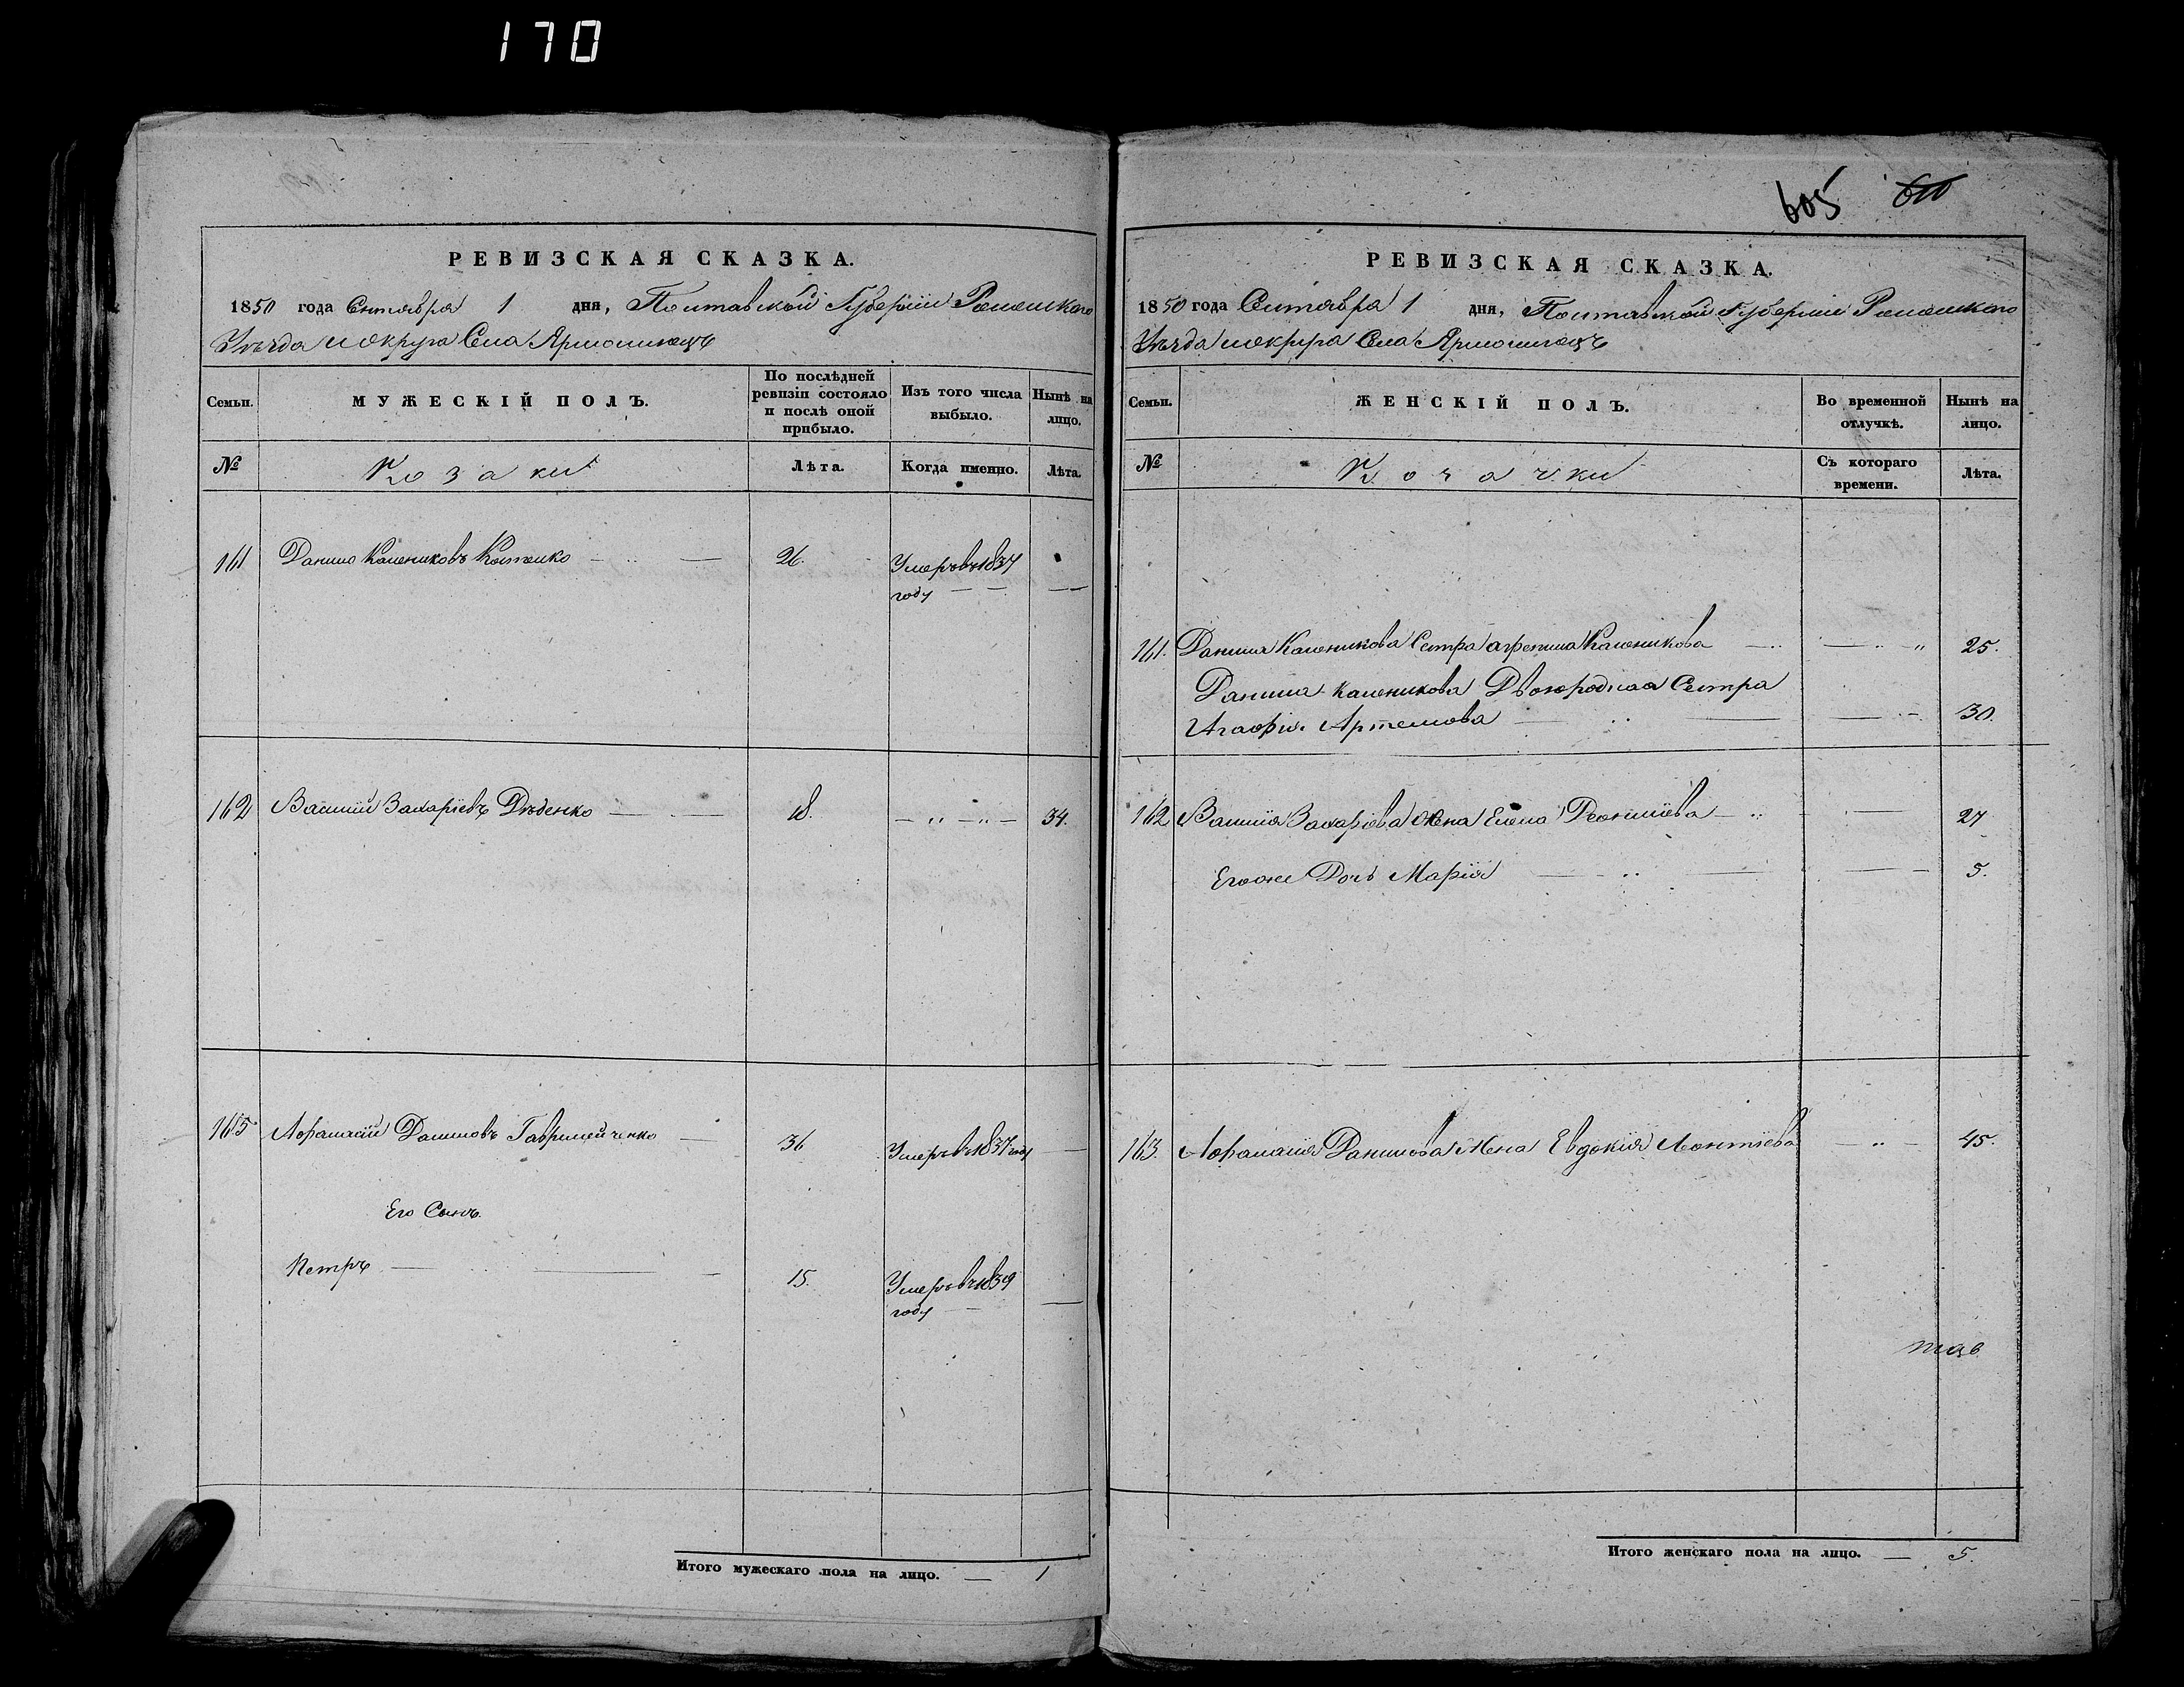 170
605 610
РЕВИЗСКАЯ СКАЗКА.
1850 года Сентября 1 дня, Полтавской Губерніи Роменского
Уѣзда и округа Села Ярмолинецъ
Семьи.
МУЖЕСКІЙ ПОЛЪ.
По послѣдней
ревизіи состояло
и послѣ оной
прибыло.
Изъ того числа
выбыло.
Нынѣ на
лицо.
№
Козаки
Лѣта.
Когда именно.
Лѣта.
161 Данило Калениковъ 26. Умеръ въ 1837
году
162 Василій Захаріевъ Дѣденко 18. 34.
163 Афанасій Даниловъ Гаврилейченко 36 Умеръ въ 1837 году
Его Сынъ
Петръ 15. Умеръ въ 1839
году
Итого мужескаго пола на лицо. 1
РЕВИЗСКАЯ СКАЗКА.
1850 года Сентября 1 дня, Полтавской Губерніи Роменского
Уѣзда и округа Села Ярмолинецъ
Семьи.
ЖЕНСКІЙ ПОЛЪ.
Во временной
отлучкѣ.
Нынѣ на
лицо.
№
Козачки
Съ котораго
времени.
Лѣта.
161. Данила Каленикова Сестра Агрепина Каленикова 25.
Данила Каленикова Двоюродная Сестра
Агафія Артемова 30.
162 Василія Захаріева жена Елена Леонтіева 27
Его же Дочь Марія 5.
163. Афанасія Данилова Жена Евдокія Леонтіева 45.
Итого женскаго пола на лицо. 5.